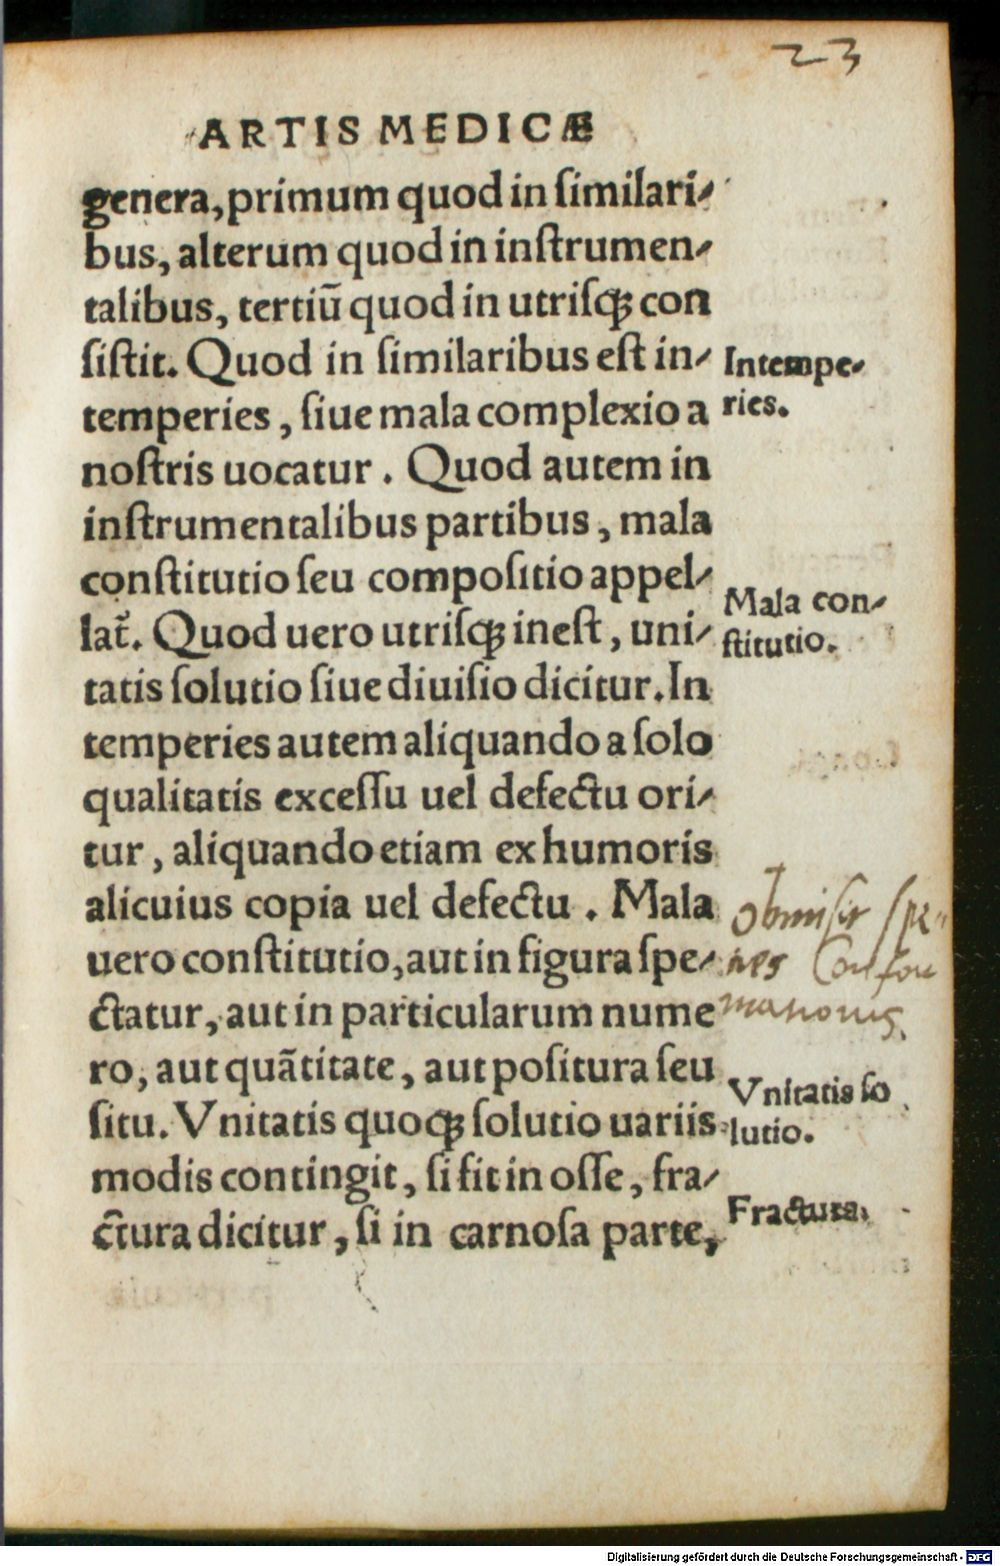 23
ARTIS MEDICÆ
genera, primum quod in ſimilari-
bus, alterum quod in inſtrumen-
talibus, tertiũ quod in utriſꝗ con
ſiſtit. Quod in ſimilaribus eſt in-
Intempe-
temperies, ſiue mala complexio a
ries.
noſtris uocatur. Quod autem in
inſtrumentalibus partibus, mala
conſtitutio ſeu compoſitio appel-
Mala con-
lat᷑. Quod uero utriſꝗ ineſt, uni-
ſtitutio.
tatis ſolutio ſiue diuiſio dicitur. In
temperies autem aliquando a ſolo
qualitatis exceſſu uel defectu ori-
tur, aliquando etiam ex humoris
alicuius copia uel defectu. Mala
uero conſtitutio, aut in figura ſpe-
ctatur, aut in particularum nume
ro, aut quãtitate, aut poſitura ſeu
Vnitatis ſo
ſitu. Vnitatis quoꝗ ſolutio uariis
lutio.
modis contingit, ſi fit in oſſe, fra-
Fractura.
ctura dicitur, ſi in carnoſa parte,
Digitalisierung gefördert durch die Deutsche Forschungsgemeinschaft - DFG